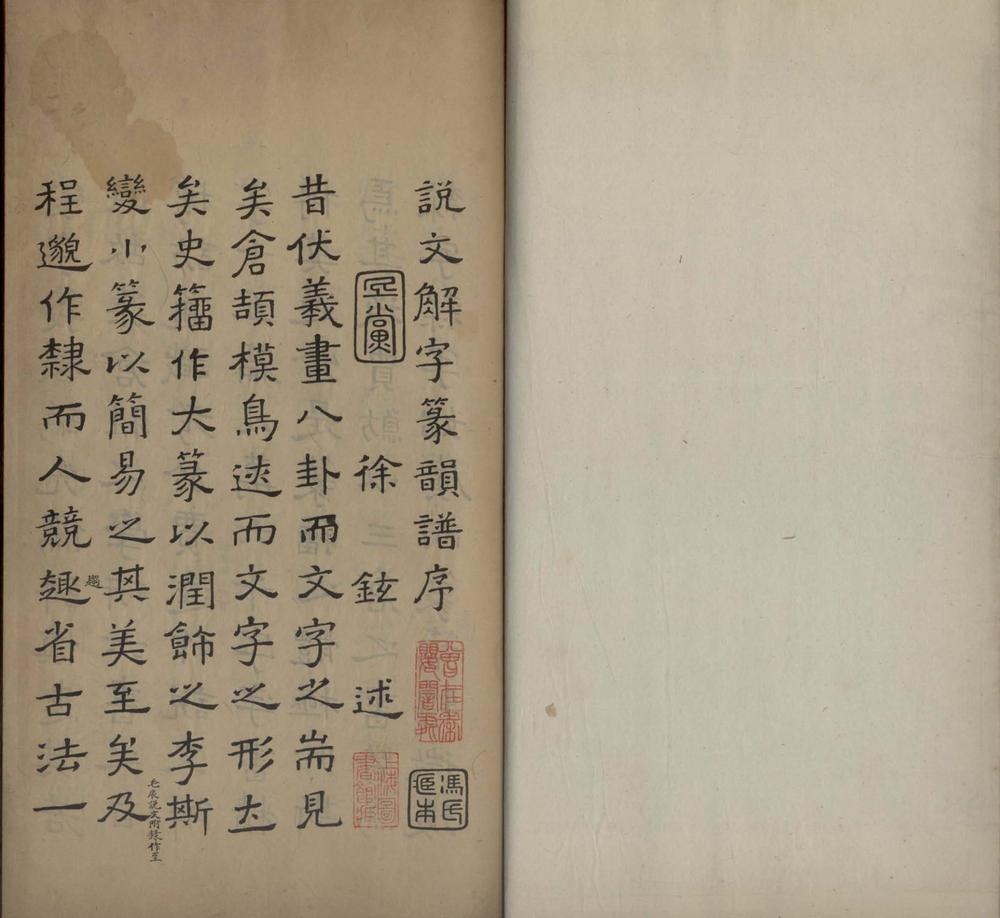 説文解字篆韻譜序
徐鉉述
昔伏羲畫八卦而文字之耑見
矣倉頡模鳥迹而文字之形立
矣史籒作大篆以潤飾之李斯
變小篆以簡易之其美至矣及
毛扆說文附錄作至
程邈作隸而人競趣省古法一
趨
馮氏
上海圖書館藏